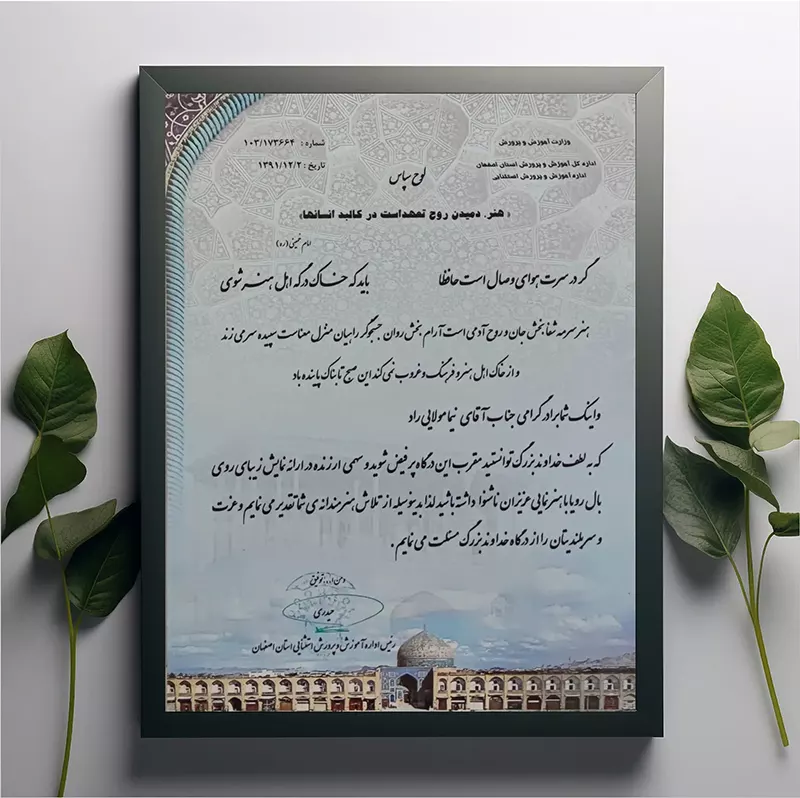 وزارت آموزش و پرورش
اداره کل آموزش و پرورش استان اصفهان
اداره آموزش و پرورش استثنایی
شماره : ۱۰۳/۱۷۳۶۶۴
تاریخ : ۱۳۹۱/۱۲/۲
لوح سپاس
« هنر، دمیدن روح تعهداست در کالبد انسانها»
امام خمینی (ره)
گر در سرت هوای وصال است حافظا باید که خاک درگه اهل هنر شوی
هنر سرمه شفا بخش جان و روح آدمی است آرام بخش روان ، جستجوگر را بیان منزل معناست سپیده سر می زند
و از خاک اهل هنر و فرهنگ و غروب نمی کند این صبح تابناک پاینده باد
و اینک شما برادر گرامی جناب آقای نیما مولایی راد
که به لطف خداوند بزرگ توانستید مقرب این درگاه پر فیض شوید و سهمی ارزنده در ارائه نمایش زیبای روی
بال رویا با هنرنمایی عزیزان ناشنوا داشته باشید لذا بدینوسیله از تلاش هنرمندانه ی شما تقدیر می نمایم و عزت
و سربلندیتان را از درگاه خداوند بزرگ مسئلت می نمایم .
و من ا... توفیق
حیدری
رئیس اداره آموزش و پرورش استثنایی استان اصفهان